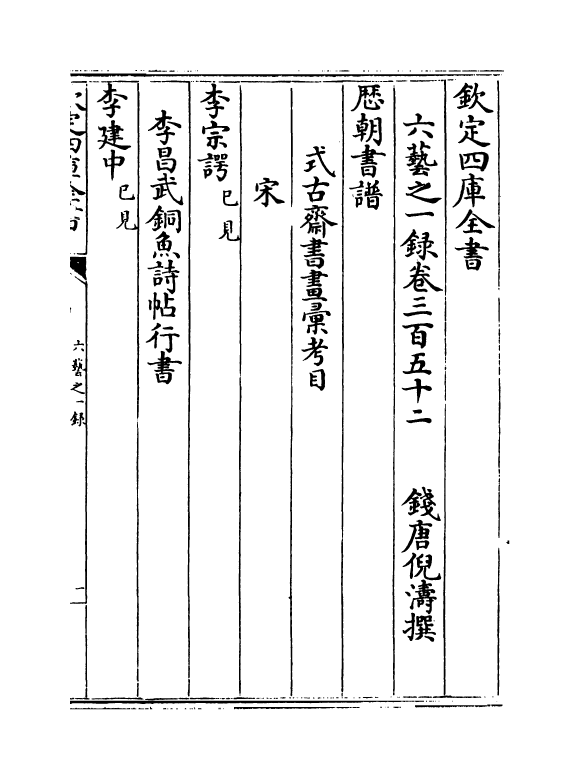 欽定四庫全書
六藝之一録卷三百五十二　錢唐倪濤撰
歴朝書譜
式古齋書畫彙考目
宋
李宗諤已見
李昌武銅魚詩帖行書
李建中已見
六藝之一録